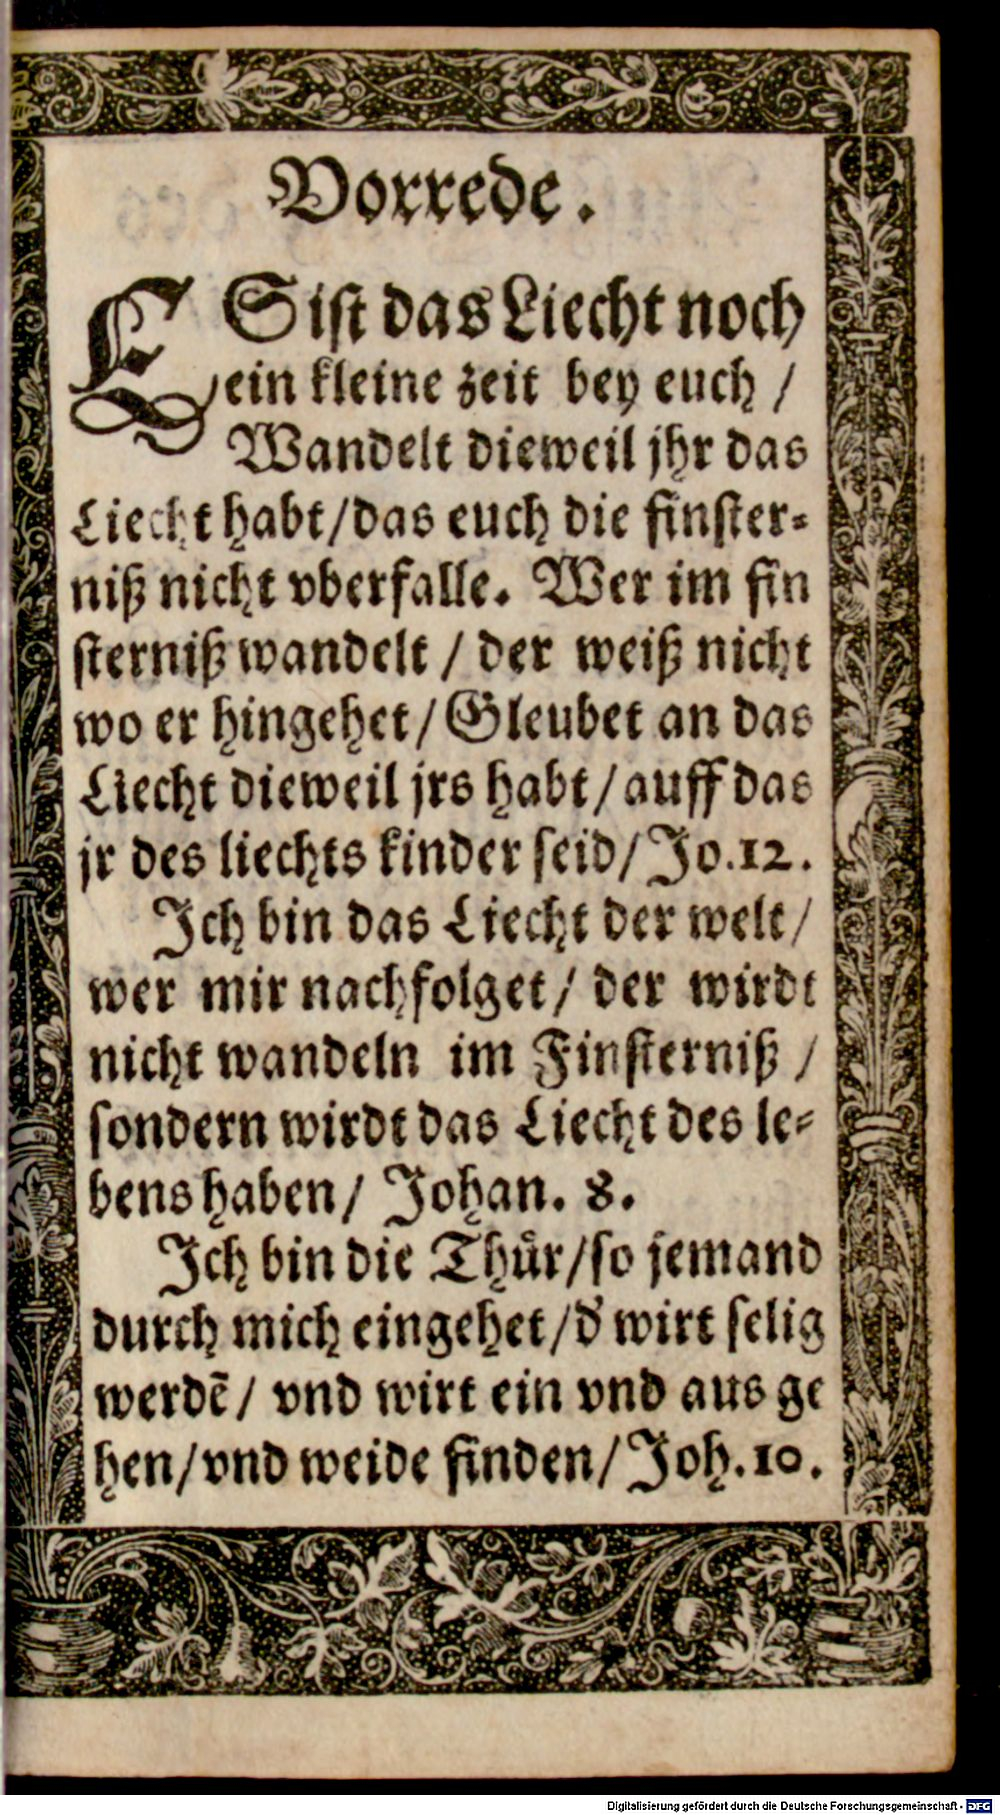 Vorrede.
ES ist das Liecht noch
ein kleine zeit bey euch /
Wandelt dieweil jhr das
Liecht habt/das euch die finster⸗
niß nicht vberfalle. Wer im fin
sterniß wandelt / der weiß nicht
wo er hingehet/Gleubet an das
Liecht dieweil jrs habt/auff das
jr des liechts kinder seid/Jo.12.
Jch bin das Liecht der welt/
wer mir nachfolget/ der wirdt
nicht wandeln im Finsterniß /
sondern wirdt das Liecht des le⸗
bens haben/ Johan. 8.
Jch bin die Thuͤr/so jemand
durch mich eingehet/d̕ wirt selig
werdē/ vnd wirt ein vnd aus ge
hen/vnd weide finden/Joh.10.
Digitalisierung gefördert durch die Deutsche Forschungsgemeinschaft - DFG